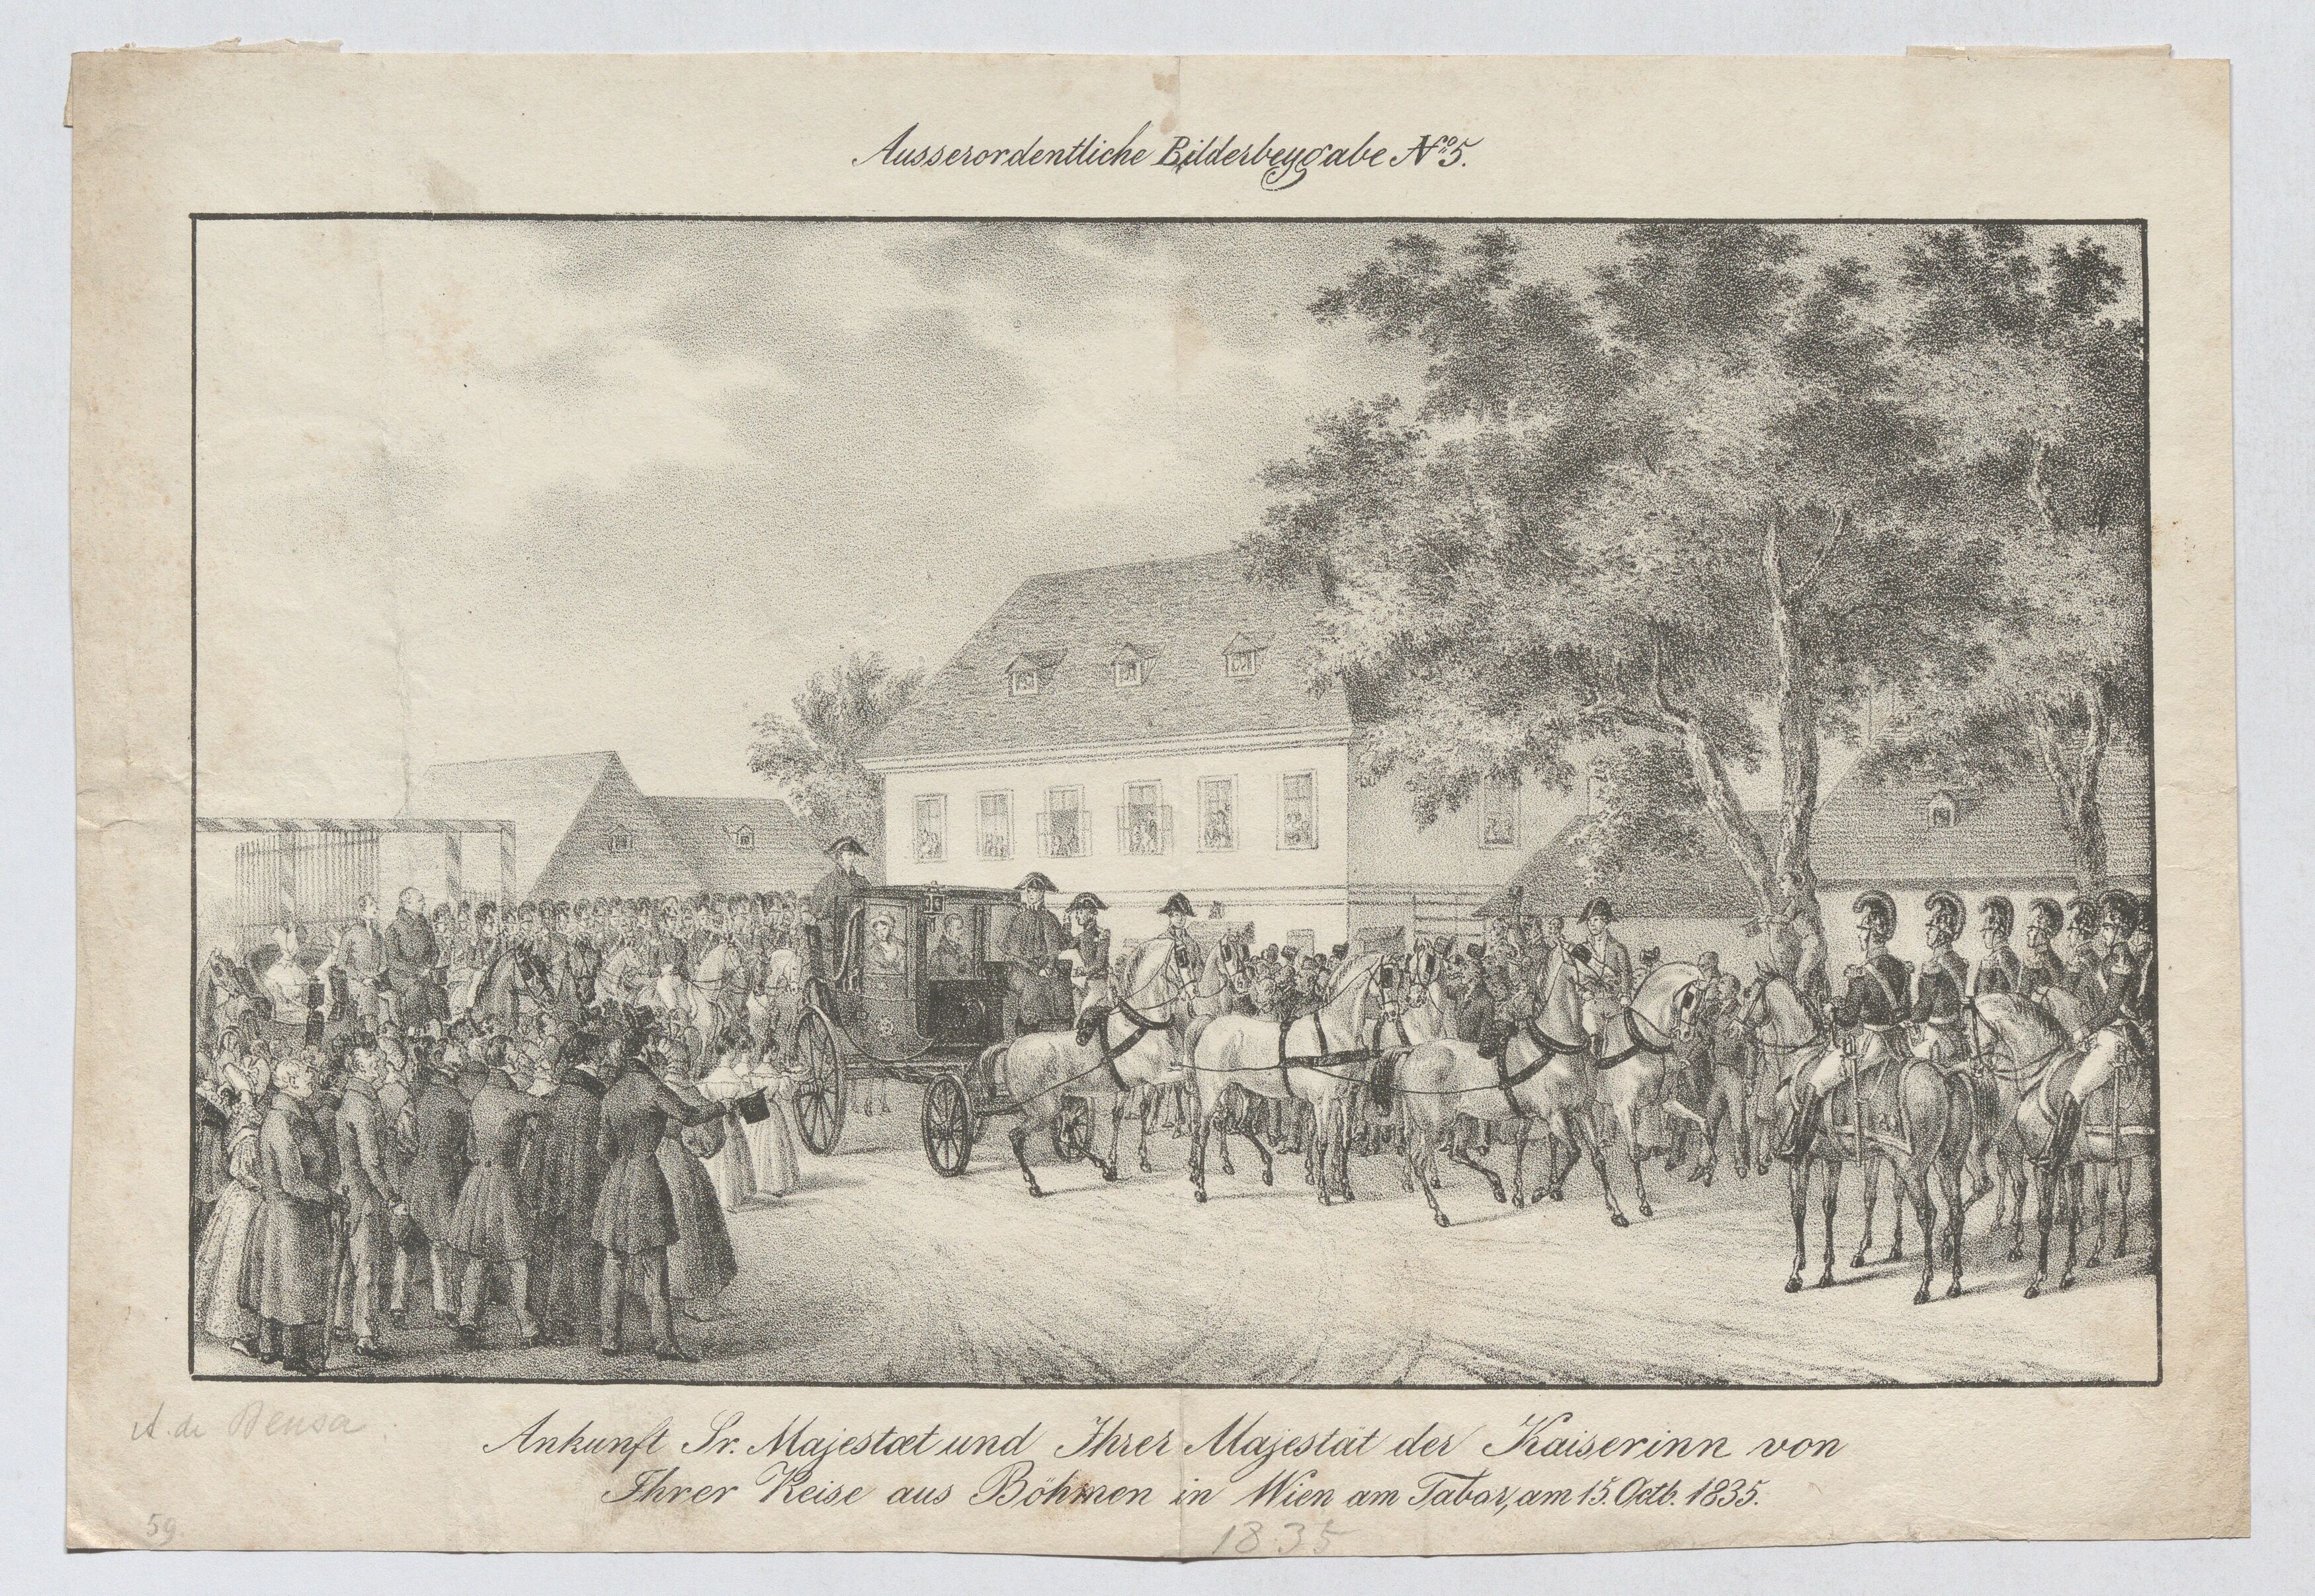 Ausserordentliche Bilderbeygabe No. 5.
A. de Bensa
Ankunft Sr. Majestæt und Ihrer Majestät der Kaiserinn von
Ihrer Reise aus Böhmen in Wien am Tabor, am 15. Octb. 1835.
59.
1835